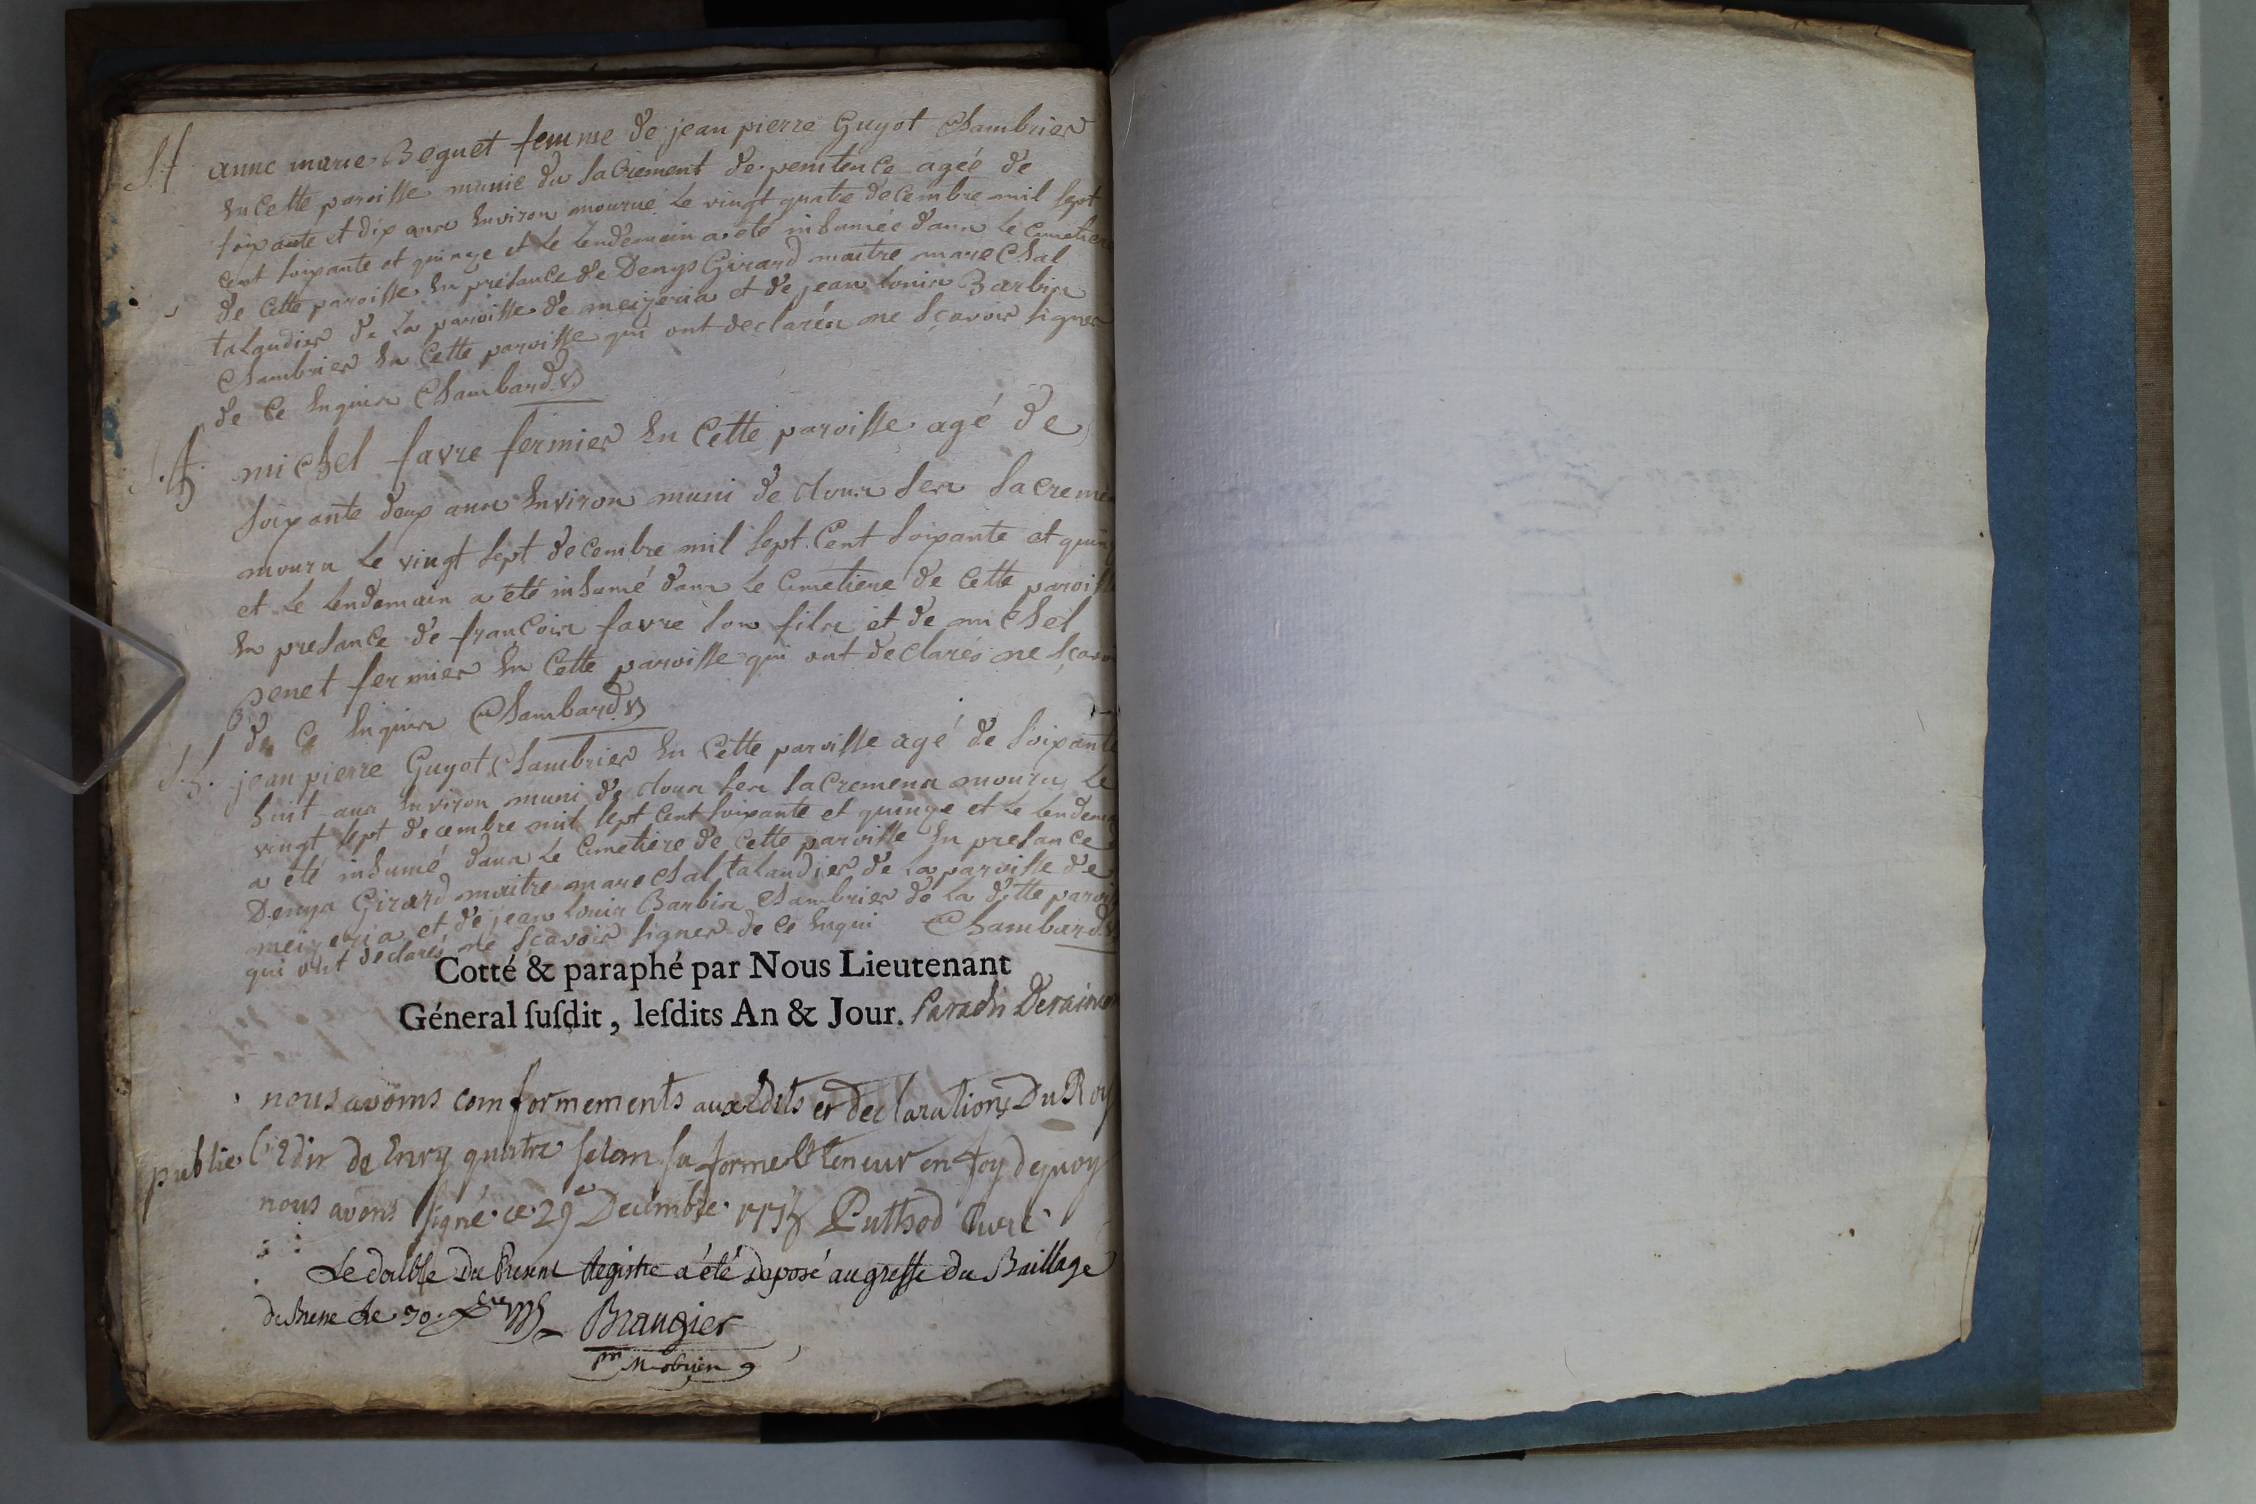 anne marie Beguet femme de jean pierre Guyot Chambrier
En cette paroisse munie du sacrement de penitence agée de
soixante et dix ans Environ mourue le vingt quatre decembre mil sept
cent soixante et quinze et le lendemain a été inhumée dans le cimetiere
de cette paroisse En presance de Denys Girard maitre marechal
talandier de la paroisse de meizeria et de jean louis Barbin
Chambrier En cette paroisse qui ont declarés ne sçavoir signer
de ce Enquis Chambard
michel favre fermier En cette paroisse agé de
soixante deux ans Environ muni de tous ses sacremen
mouru le vingt sept decembre mil sept cent soixante et quin
et le lendemain a été inhumé dans le cimetiere de cette paroisse
En presance de francois favre son fils et de michel
penet fermier En cette paroisse qui ont declarés ne sçavoi
de ce Enquis Chambard
jean pierre Guyot Chambrier En cette paroisse agé de soixante
huit ans Environ muni de tous ses sacremens mouru le
vingt sept decembre mil sept cent soixante et quinze et le lendema
a été inhumé dans le cimetiere de cette paroisse En presance
Denys Girard maitre marechal talandier de la paroisse de
meizeria et de jean louis Barbin Chambrier de la ditte parois
qui ont declarés ne sçavoir signer de ce Enqui Chambard
Cotté & paraphé par Nous Lieutenant
Géneral ſuſdit, leſdits An & Jour.
nous avoms comformements aux Edits et declarations Du Roy
publie l'Edit de Enry quatre selom sa forme et teneur en foy de quoy
nous avons signé ce 29e Decembre 1775 Puthod Curé
Le double du Present Registre a été deposé au greffe du Baillage
de Bresse le 30 Braugier